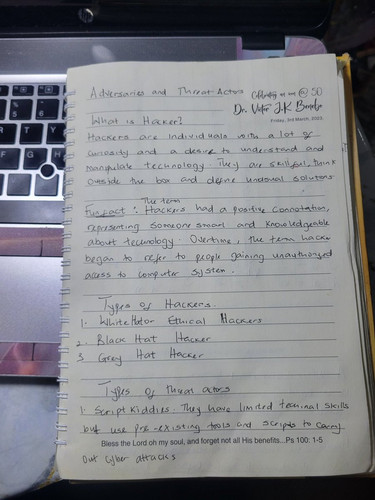 Adversaries and Threat Actors
Celebrating an icon @ 50
Dr. Victor J.K
Friday, 3rd March, 2023
What is Hacker?
Hackers are individuals with a lot of
curiosity and a desire to understand and
manipulate technology. They are skillful, think
outside the box and define unusual solutions
The term
Fun fact: Hackers had a positive connotation,
representing someone smart and knowledgeable
about technology. Overtime, the term hacker
began to refer to people gaining unauthorized
access to computer system.
Types of Hackers
1. White Hat or Ethical Hackers
2. Black Hat Hacker
3 Grey Hat Hacker
Types of threat actors
1. Script Kiddies: They have limited technical skills
but use pre-existing tools and scripts to carry
Bless the Lord oh my soul, and forget not all His benefits...Ps 100: 1-5
out cyber attacks